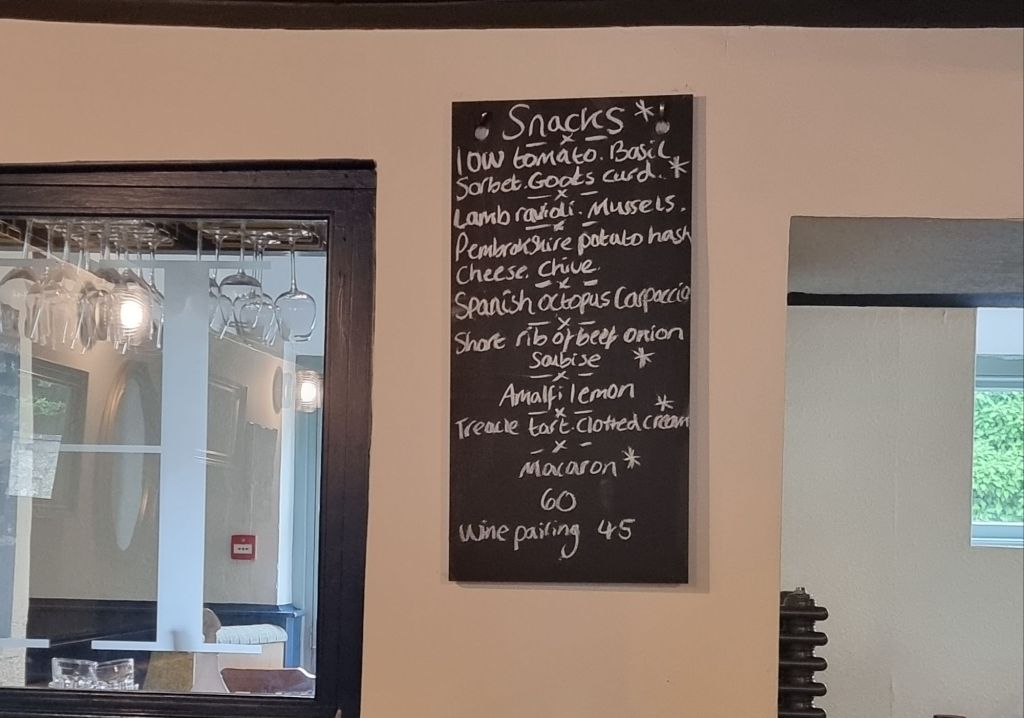 Snacks *
- x -
IOW tomato. Basil
Sorbet. Goats curd. *
- x -
Lamb ravioli. Mussels.
- x -
Pembrokshire potato hash
Cheese. Chive.
- x -
Spanish octopus Carpaccio
- x -
Short rib of beef onion
Soubise *
- x -
Amalfi lemon
- x - *
Treacle tart. Clotted cream
- x -
Macaron *
60
Wine pairing 45